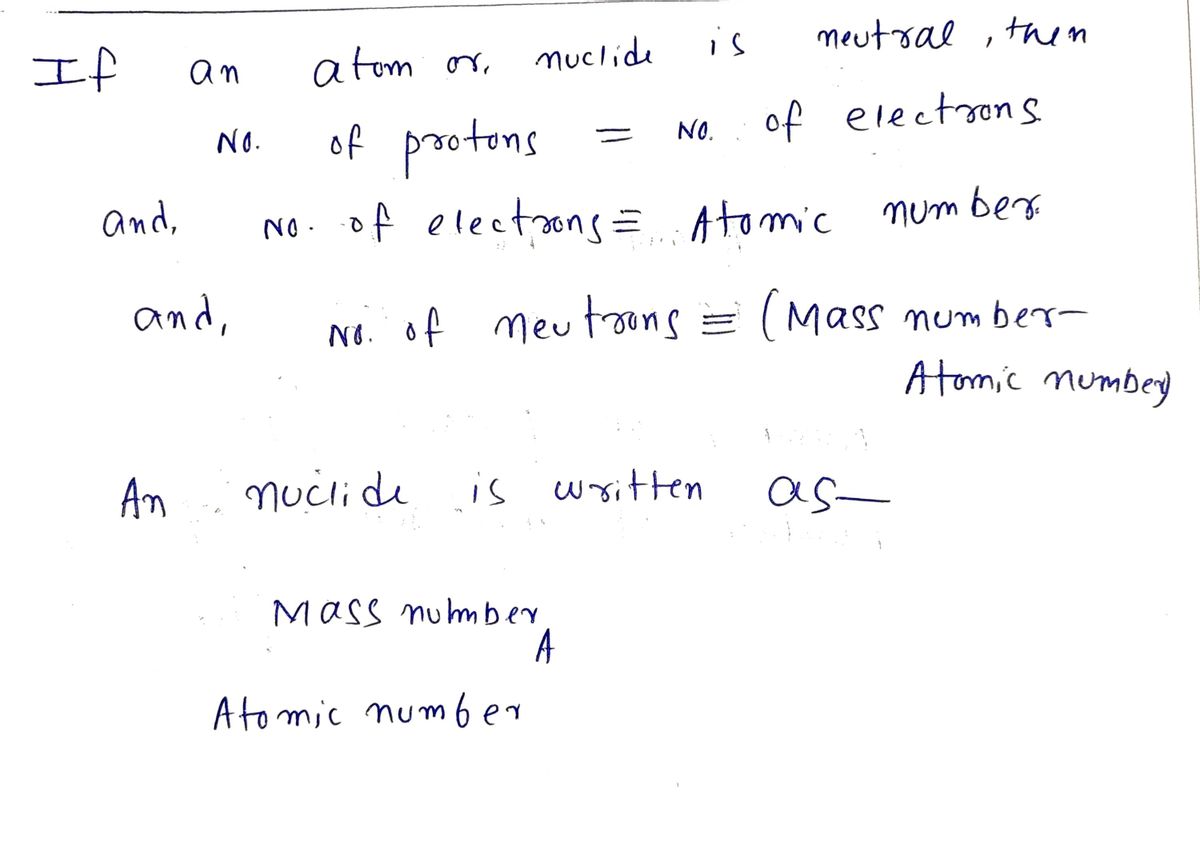 If an atom or, nuclide is neutral, then
No. of protons = No. of electrons.
and, No. of electrons ≡ Atomic number.
and, No. of neutrons ≡ (Mass number-
Atomic number)
An nuclide is written as—
Mass nubmber
A
Atomic number